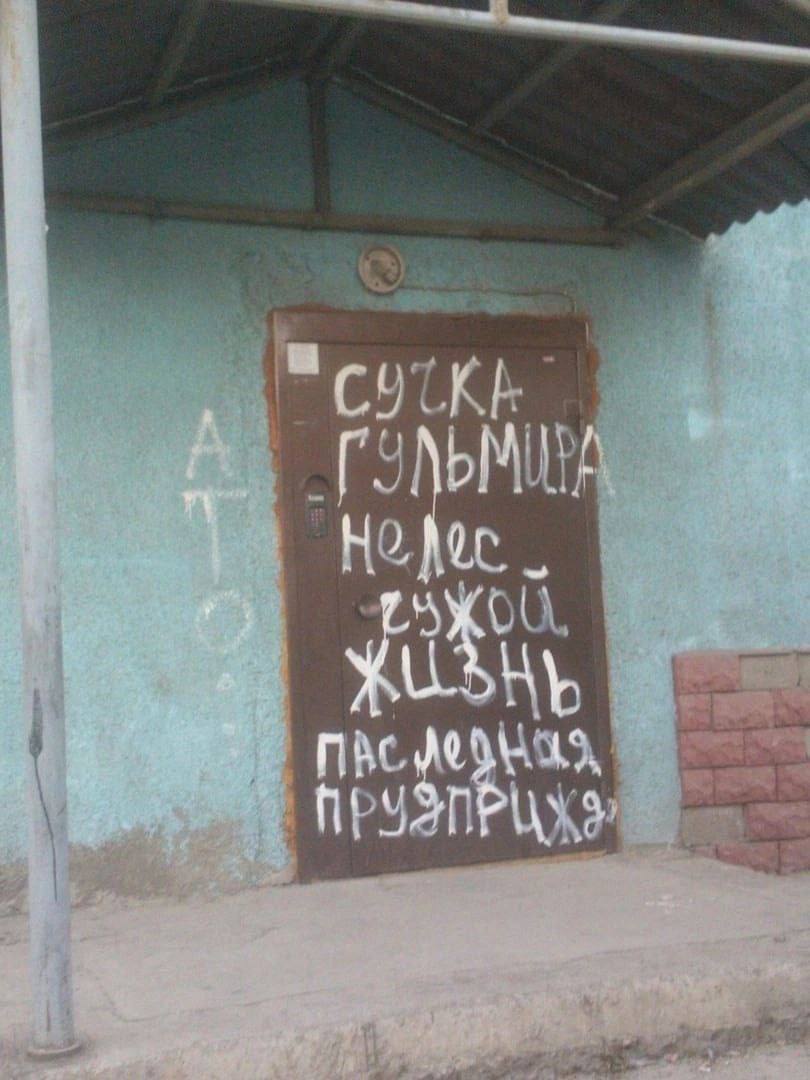 СУЧКА
ГУЛЬМИРА
НЕ ЛЕС
ЧУЖОЙ
ЖИЗНЬ
ПАСЛЕДНАЯ
ПРУДПРИЖД
АТО